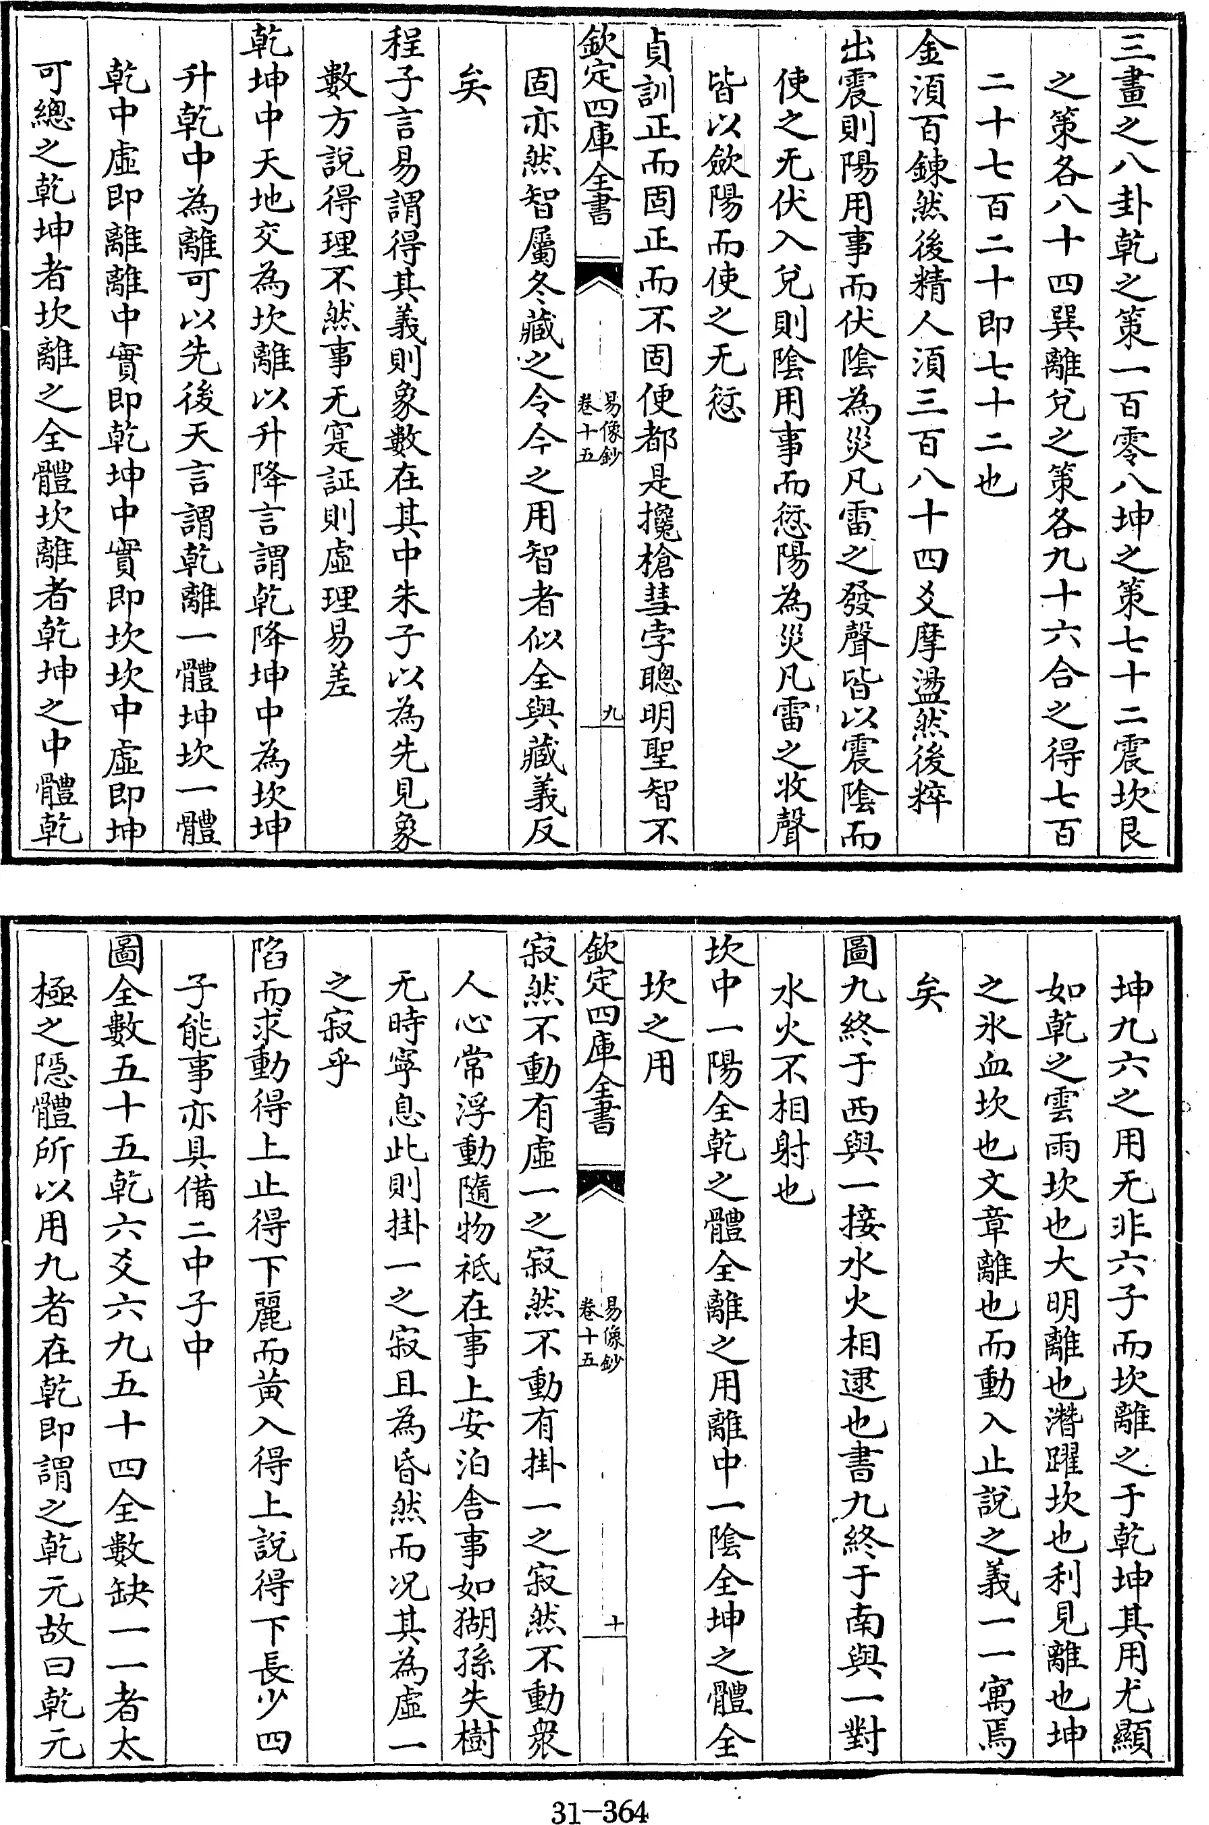 三畫之八卦乾之策一百零八坤之策七十二震坎艮
之策各八十四巽離兌之策各九十六合之得七百
二十七百二十即七十二也
金須百鍊然後精人須三百八十四爻摩盪然後粹
出震則陽用事而伏陰為災凡雷之發聲皆以震陰而
使之无伏入兌則陰用事而愆陽為災凡雷之收聲
皆以斂陽而使之无愆
貞訓正而固正而不固便都是攙槍彗孛聰明聖智不
欽定四庫全書
易像鈔
卷十五
九
固亦然智屬冬藏之令今之用智者似全與藏義反
矣
程子言易謂得其義則象數在其中朱子以為先見象
數方說得理不然事无寔証則虛理易差
乾坤中天地交為坎離以升降言謂乾降坤中為坎坤
升乾中為離可以先後天言謂乾離一體坤坎一體
乾中虛即離離中實即乾坤中實即坎坎中虛即坤
可總之乾坤者坎離之全體坎離者乾坤之中體乾
坤九六之用无非六子而坎離之于乾坤其用尤顯
如乾之雲雨坎也大明離也潛躍坎也利見離也坤
之氷血坎也文章離也而動入止說之義一一寓焉
矣
圖九終于西與一接水火相逮也書九終于南與一對
水火不相射也
坎中一陽全乾之體全離之用離中一陰全坤之體全
坎之用
欽定四庫全書
易像鈔
卷十五
十
寂然不動有虛一之寂然不動有掛一之寂然不動衆
人心常浮動隨物祇在事上安泊舎事如猢孫失樹
无時寧息此則掛一之寂且為昏然而况其為虛一
之寂乎
陷而求動得上止得下麗而黃入得上說得下長少四
子能事亦具備二中子中
圖全數五十五乾六爻六九五十四全數缺一一者太
極之隱體所以用九者在乾即謂之乾元故曰乾元
31-364